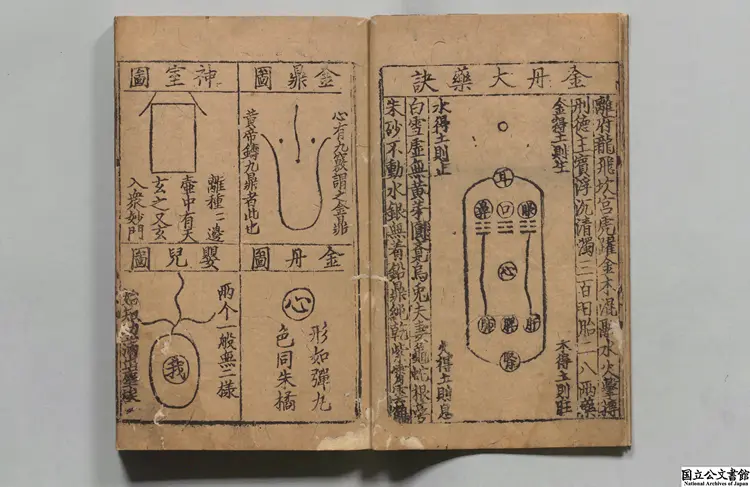 金丹大藥訣
離府龍飛坎宮虎躍金木混融水火擊搏
刑德主賓浮沉清濁三百日胎二八兩藥
金得土則生
木得土則旺
耳
眼
口
鼻
心
肝
脾
肺
腎
水得土則止
火得土則息
白雪虛無黃芽烏兔夫妻龜蛇根萼
朱砂不動水銀無着鉛鼎純乾紫
金鼎圖
心有九竅謂之金鼎
黃帝鑄九鼎者此也
神室圖
離種二邊
壺中有天
玄之又玄
入衆妙門
金丹圖
心
形如彈丸
色同朱橘
嬰兒圖
兩个一般無二樣
我
国立公文書館
National Archives of Japan